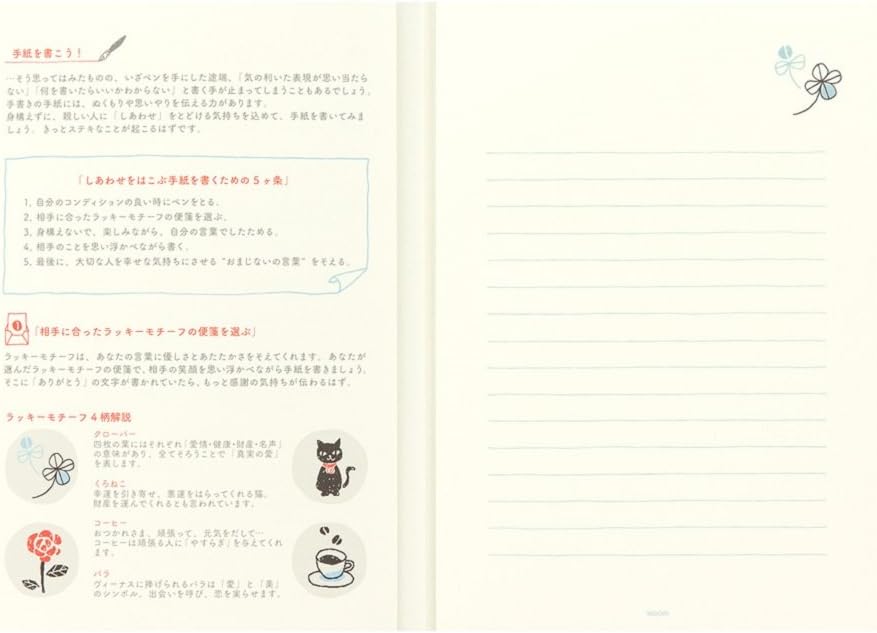 手紙を書こう!
…そう思ってはみたものの、いざペンを手にした途端、「気の利いた表現が思い当たら
ない」「何を書いたらいいかわからない」と書く手が止まってしまうこともあるでしょう。
手書きの手紙には、ぬくもりや思いやりを伝える力があります。
身構えずに、親しい人に「しあわせ」をとどける気持ちを込めて、手紙を書いてみま
しょう。きっとステキなことが起こるはずです。
「しあわせをはこぶ手紙を書くための5ヶ条」
1, 自分のコンディションの良い時にペンをとる。
2, 相手に合ったラッキーモチーフの便箋を選ぶ。
3, 身構えないで、楽しみながら、自分の言葉でしたためる。
4, 相手のことを思い浮かべながら書く。
5, 最後に、大切な人を幸せな気持ちにさせる“おまじないの言葉”をそえる。
1
「相手に合ったラッキーモチーフの便箋を選ぶ」
ラッキーモチーフは、あなたの言葉に優しさとあたたかさをそえてくれます。あなたが
選んだラッキーモチーフの便箋で、相手の笑顔を思い浮かべながら手紙を書きましょう。
そこに「ありがとう」の文字が書かれていたら、もっと感謝の気持ちが伝わるはず。
ラッキーモチーフ4柄解説
クローバー
四枚の葉にはそれぞれ「愛情・健康・財産・名声」
の意味があり、全てそろうことで「真実の愛」
を表します。
くろねこ
幸運を引き寄せ、悪運をはらってくれる猫。
財産を運んでくれるとも言われています。
コーヒー
おつかれさま、頑張って、元気をだして…
コーヒーは頑張る人に「やすらぎ」を与えてくれ
ます。
バラ
ヴィーナスに捧げられるバラは「愛」と「美」
のシンボル。出会いを呼び、恋を実らせます。
MIDORI